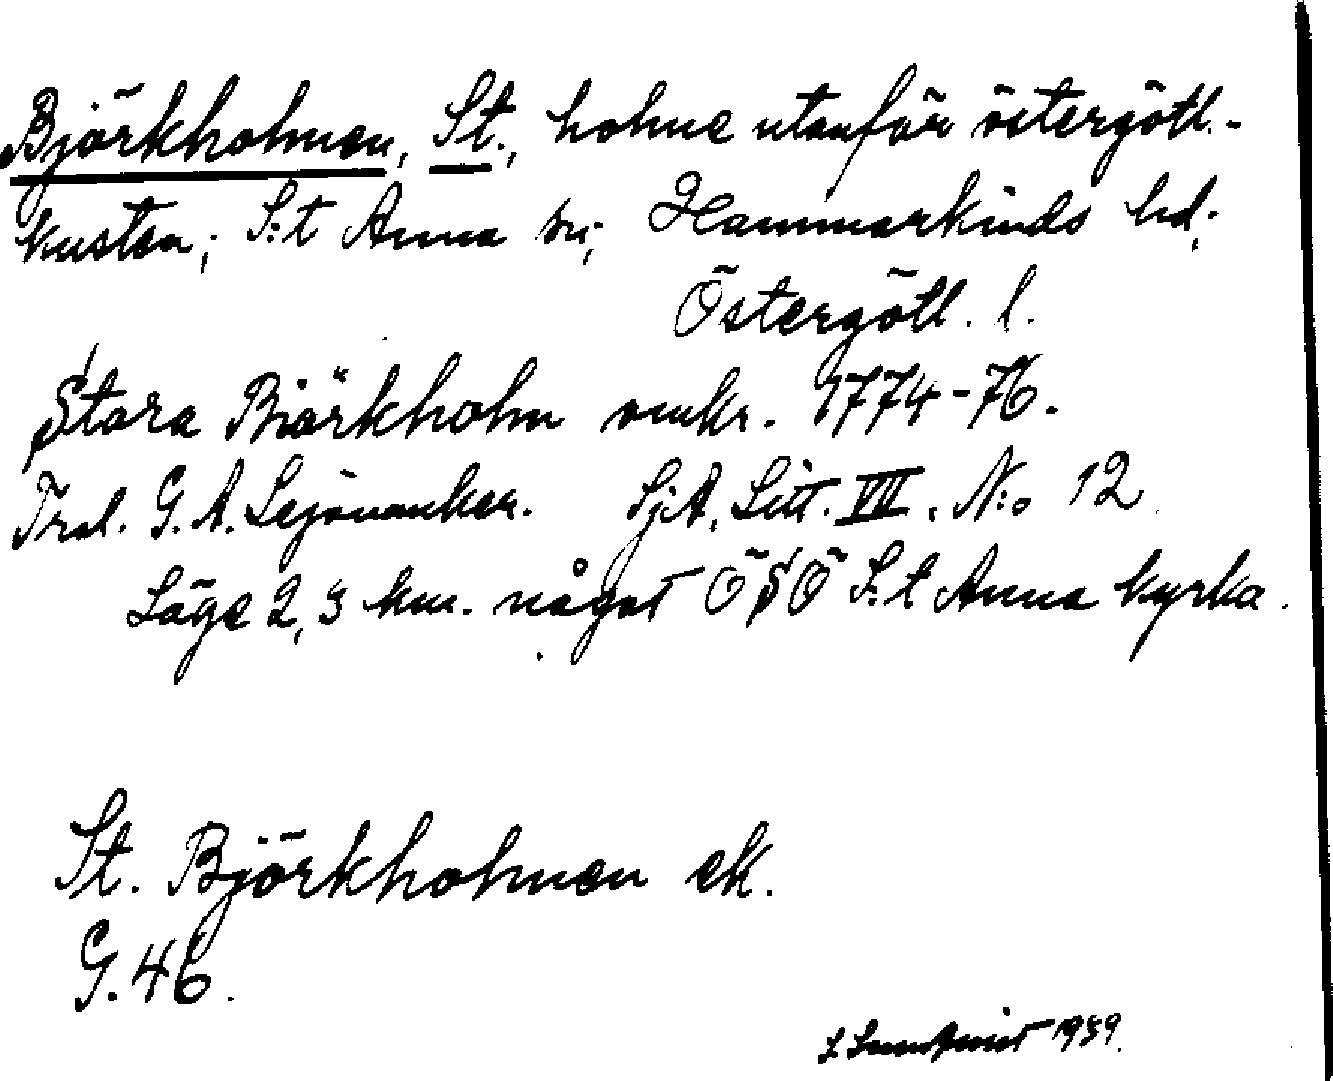 Björkholmen, St., holme utanför östergötl.-
kusten; S:t Anna sn; Hammarkinds hd;
Östergötl. l.
Stora Biörkholm omkr. 1774-76.
Trol. G. A. Lejonanker. SjA. Litt. VII. N:o 12
Läge 2,3 km. något ÖSÖ S:t Anna kyrka.
St. Björkholmen ek.
G. 46.
L Lundqvist 1939.